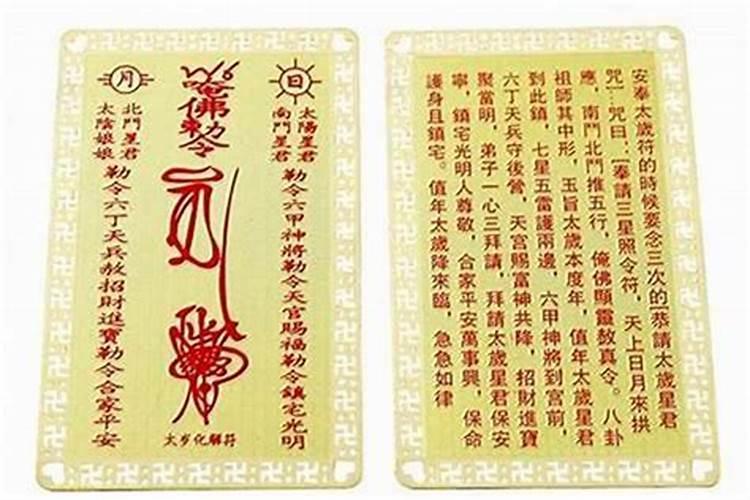 日
太陽星君
南鬥星君
勒令六甲神將勒令天官賜福勒令鎮宅光明
唵佛勅令
太岁化解符
月
北鬥星君
太陰娘娘
勒令六丁天兵赦招財進寶勒令合家平安
安奉太歲符的時候要念三次的[恭請太歲星君
咒一.咒曰:[奉請三星照令符，天上日月來拱
應，南鬥北鬥推五行，俺佛顯靈敖真令。八卦
祖師其中形，玉旨太歲本度年，值年太歲星君
到此鎮，七星五雷護兩邊，六甲神將到宮前，
六丁天兵守後營，天宮賜富神共降，招財進寶
聚當明，弟子一心三拜請，拜請太歲星君保安
寧，鎮宅光明人尊敬，合家平安萬事興，保命
護身且鎮宅。值年太歲降來臨，急急如律